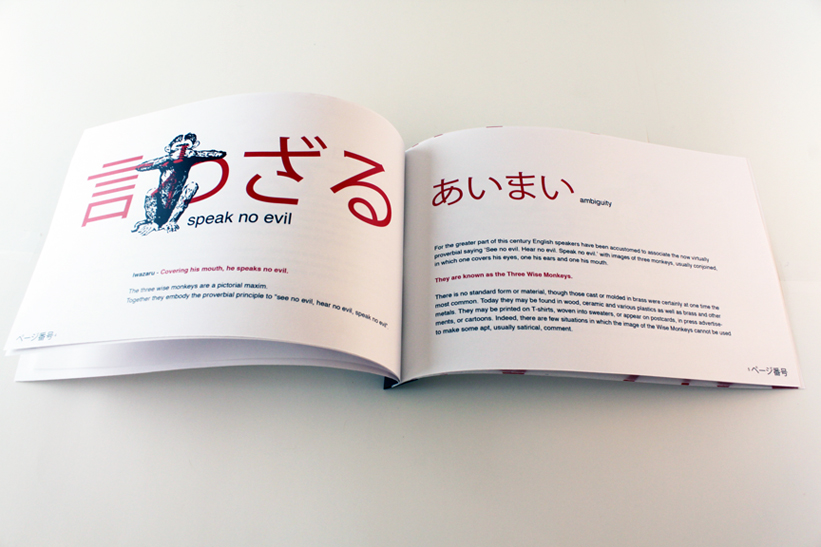 言わざる
speak no evil
Iwazaru - Covering his mouth, he speaks no evil.
The three wise monkeys are a pictorial maxim.
Together they embody the proverbial principle to "see no evil, hear no evil, speak no evil"
ページ番号
あいまい
ambiguity
For the greater part of this century English speakers have been accustomed to associate the now virtually
proverbial saying 'See no evil. Hear no evil. Speak no evil.' with images of three monkeys, usually conjoined,
in which one covers his eyes, one his ears and one his mouth.
They are known as the Three Wise Monkeys.
There is no standard form or material, though those cast or molded in brass were certainly at one time the
most common. Today they may be found in wood, ceramic and various plastics as well as brass and other
metals. They may be printed on T-shirts, woven into sweaters, or appear on postcards, in press advertise-
ments, or cartoons. Indeed, there are few situations in which the image of the Wise Monkeys cannot be used
to make some apt, usually satirical, comment.
ページ番号